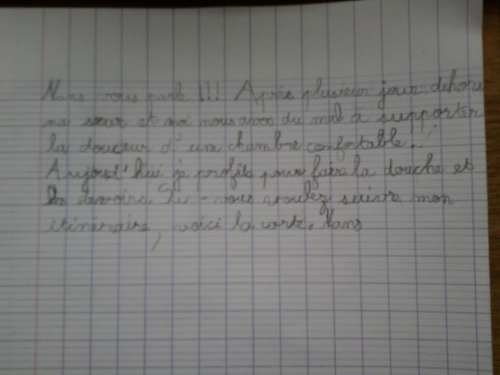 Nans vous parle !!! Après plusieur jour dehors
ma sœur et moi nous avons du mal à supporter
la douceur d'un chambre confortable..!
Aujourd'hui je profite pour faire la douche et
les devoirs. Si - vous voulez suivre mon
itinéraire, voici la carte. Nans